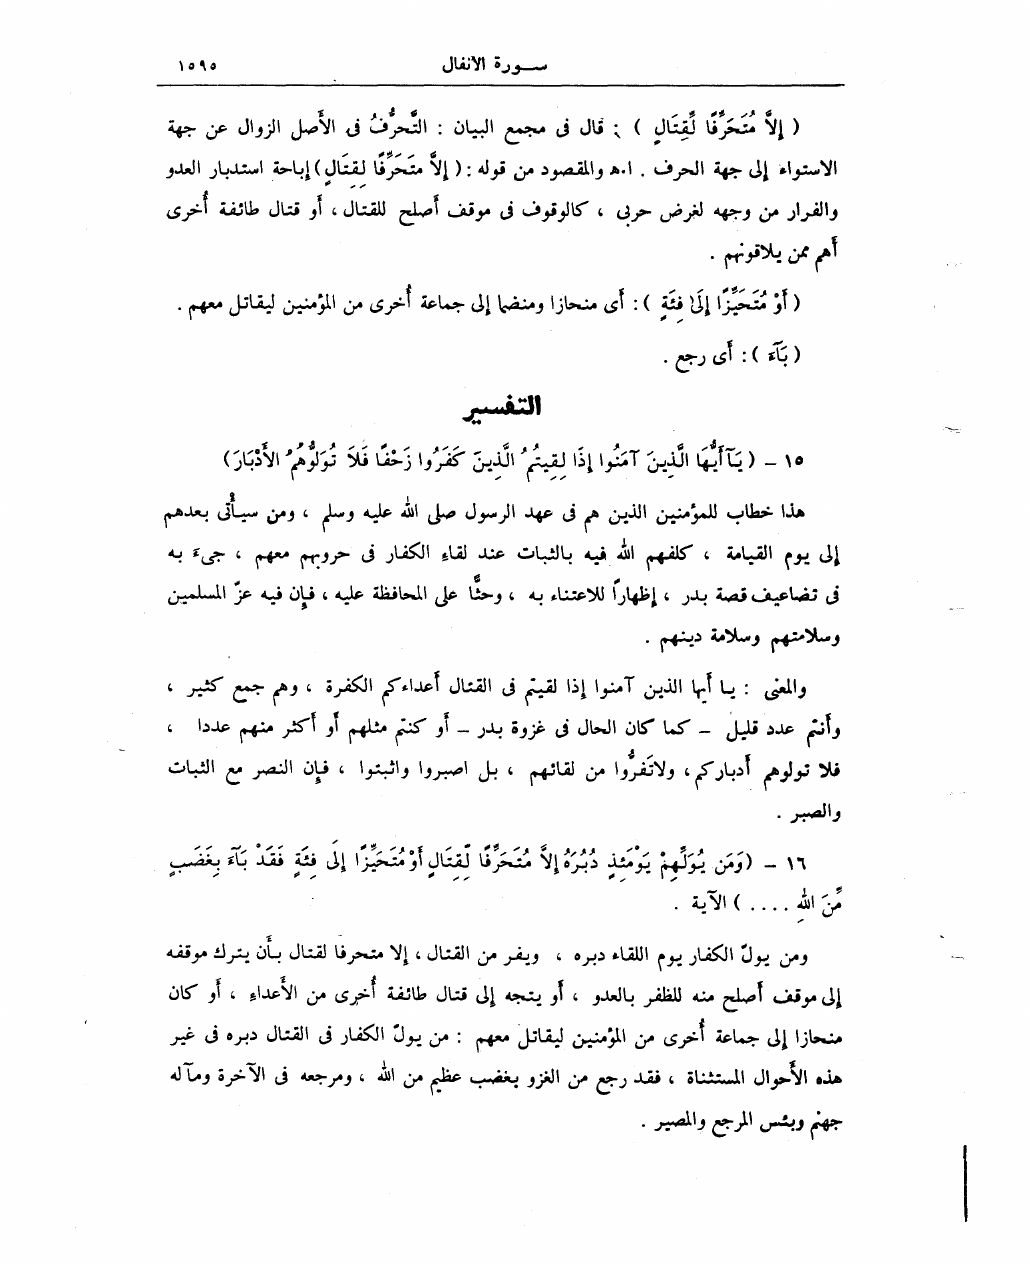 سـورة الأنفال ١٥٩٥
( إِلاَّ مُتَحَرِّفًا لِّقِتَالٍ ) : قال فى مجمع البيان : التَّحرُّفُ فى الأصل الزوال عن جهة
الاستواء إلى جهة الحرف . ا.هـ والمقصود من قوله : (إِلاَّ مُتَحَرِّفًا لِقِتَالٍ) إباحة استدبار العدو
والفرار من وجهه لغرض حربى ، كالوقوف فى موقف أصلح للقتال ، أو قتال طائفة أُخرى
أهم ممن يلاقونهم .
( أَوْ مُتَحَيِّزًا إِلَىٰ فِئَةٍ ) : أى منحازا ومنضما إلى جماعة أُخرى من المؤمنين ليقاتل معهم .
( بَآءَ ) : أى رجع .
التفسير
١٥ – ( يَآأَيُّهَا الَّذِينَ آمَنُوا إِذَا لَقِيتُمُ الَّذِينَ كَفَرُوا زَحْفًا فَلاَ تُوَلُّوهُمُ الأَدْبَارَ)
هذا خطاب للمؤمنين الذين هم فى عهد الرسول صلى الله عليه وسلم ، ومن سيأْتى بعدهم
إلى يوم القيامة ، كلفهم الله فيه بالثبات عند لقاء الكفار فى حروبهم معهم ، جىءَ به
فى تضاعيف قصة بدر ، إظهاراً للاعتناء به ، وحثًّا على المحافظة عليه ، فإن فيه عزّ المسلمين
وسلامتهم وسلامة دينهم .
والمعنى : يا أيها الذين آمنوا إذا لقيتم فى القتال أعداءكم الكفرة ، وهم جمع كثير ،
وأنتم عدد قليل – كما كان الحال فى غزوة بدر – أو كنتم مثلهم أو أكثر منهم عددا ،
فلا تولوهم أدباركم ، ولاتَفرُّوا من لقائهم ، بل اصبروا واثبتوا ، فإن النصر مع الثبات
والصبر .
١٦ – (وَمَن يُوَلِّهِمْ يَوْمَئِذٍ دُبُرَهُ إِلاَّ مُتَحَرِّفًا لِّقِتَالٍ أَوْ مُتَحَيِّزًا إِلَى فِئَةٍ فَقَدْ بَآءَ بِغَضَبٍ
مِّنَ اللهِ .... ) الآية .
ومن يولّ الكفار يوم اللقاء دبره ، ويفر من القتال ، إلا متحرفا لقتال بأَن يترك موقفه
إلى موقف أصلح منه للظفر بالعدو ، أو يتجه إلى قتال طائفة أُخرى من الأعداءِ ، أو كان
منحازا إلى جماعة أُخرى من المؤمنين ليقاتل معهم : من يولّ الكفار فى القتال دبره فى غير
هذه الأحوال المستثناة ، فقد رجع من الغزو بغضب عظيم من الله ، ومرجعه فى الآخرة ومآله
جهنم وبئس المرجع والمصير .